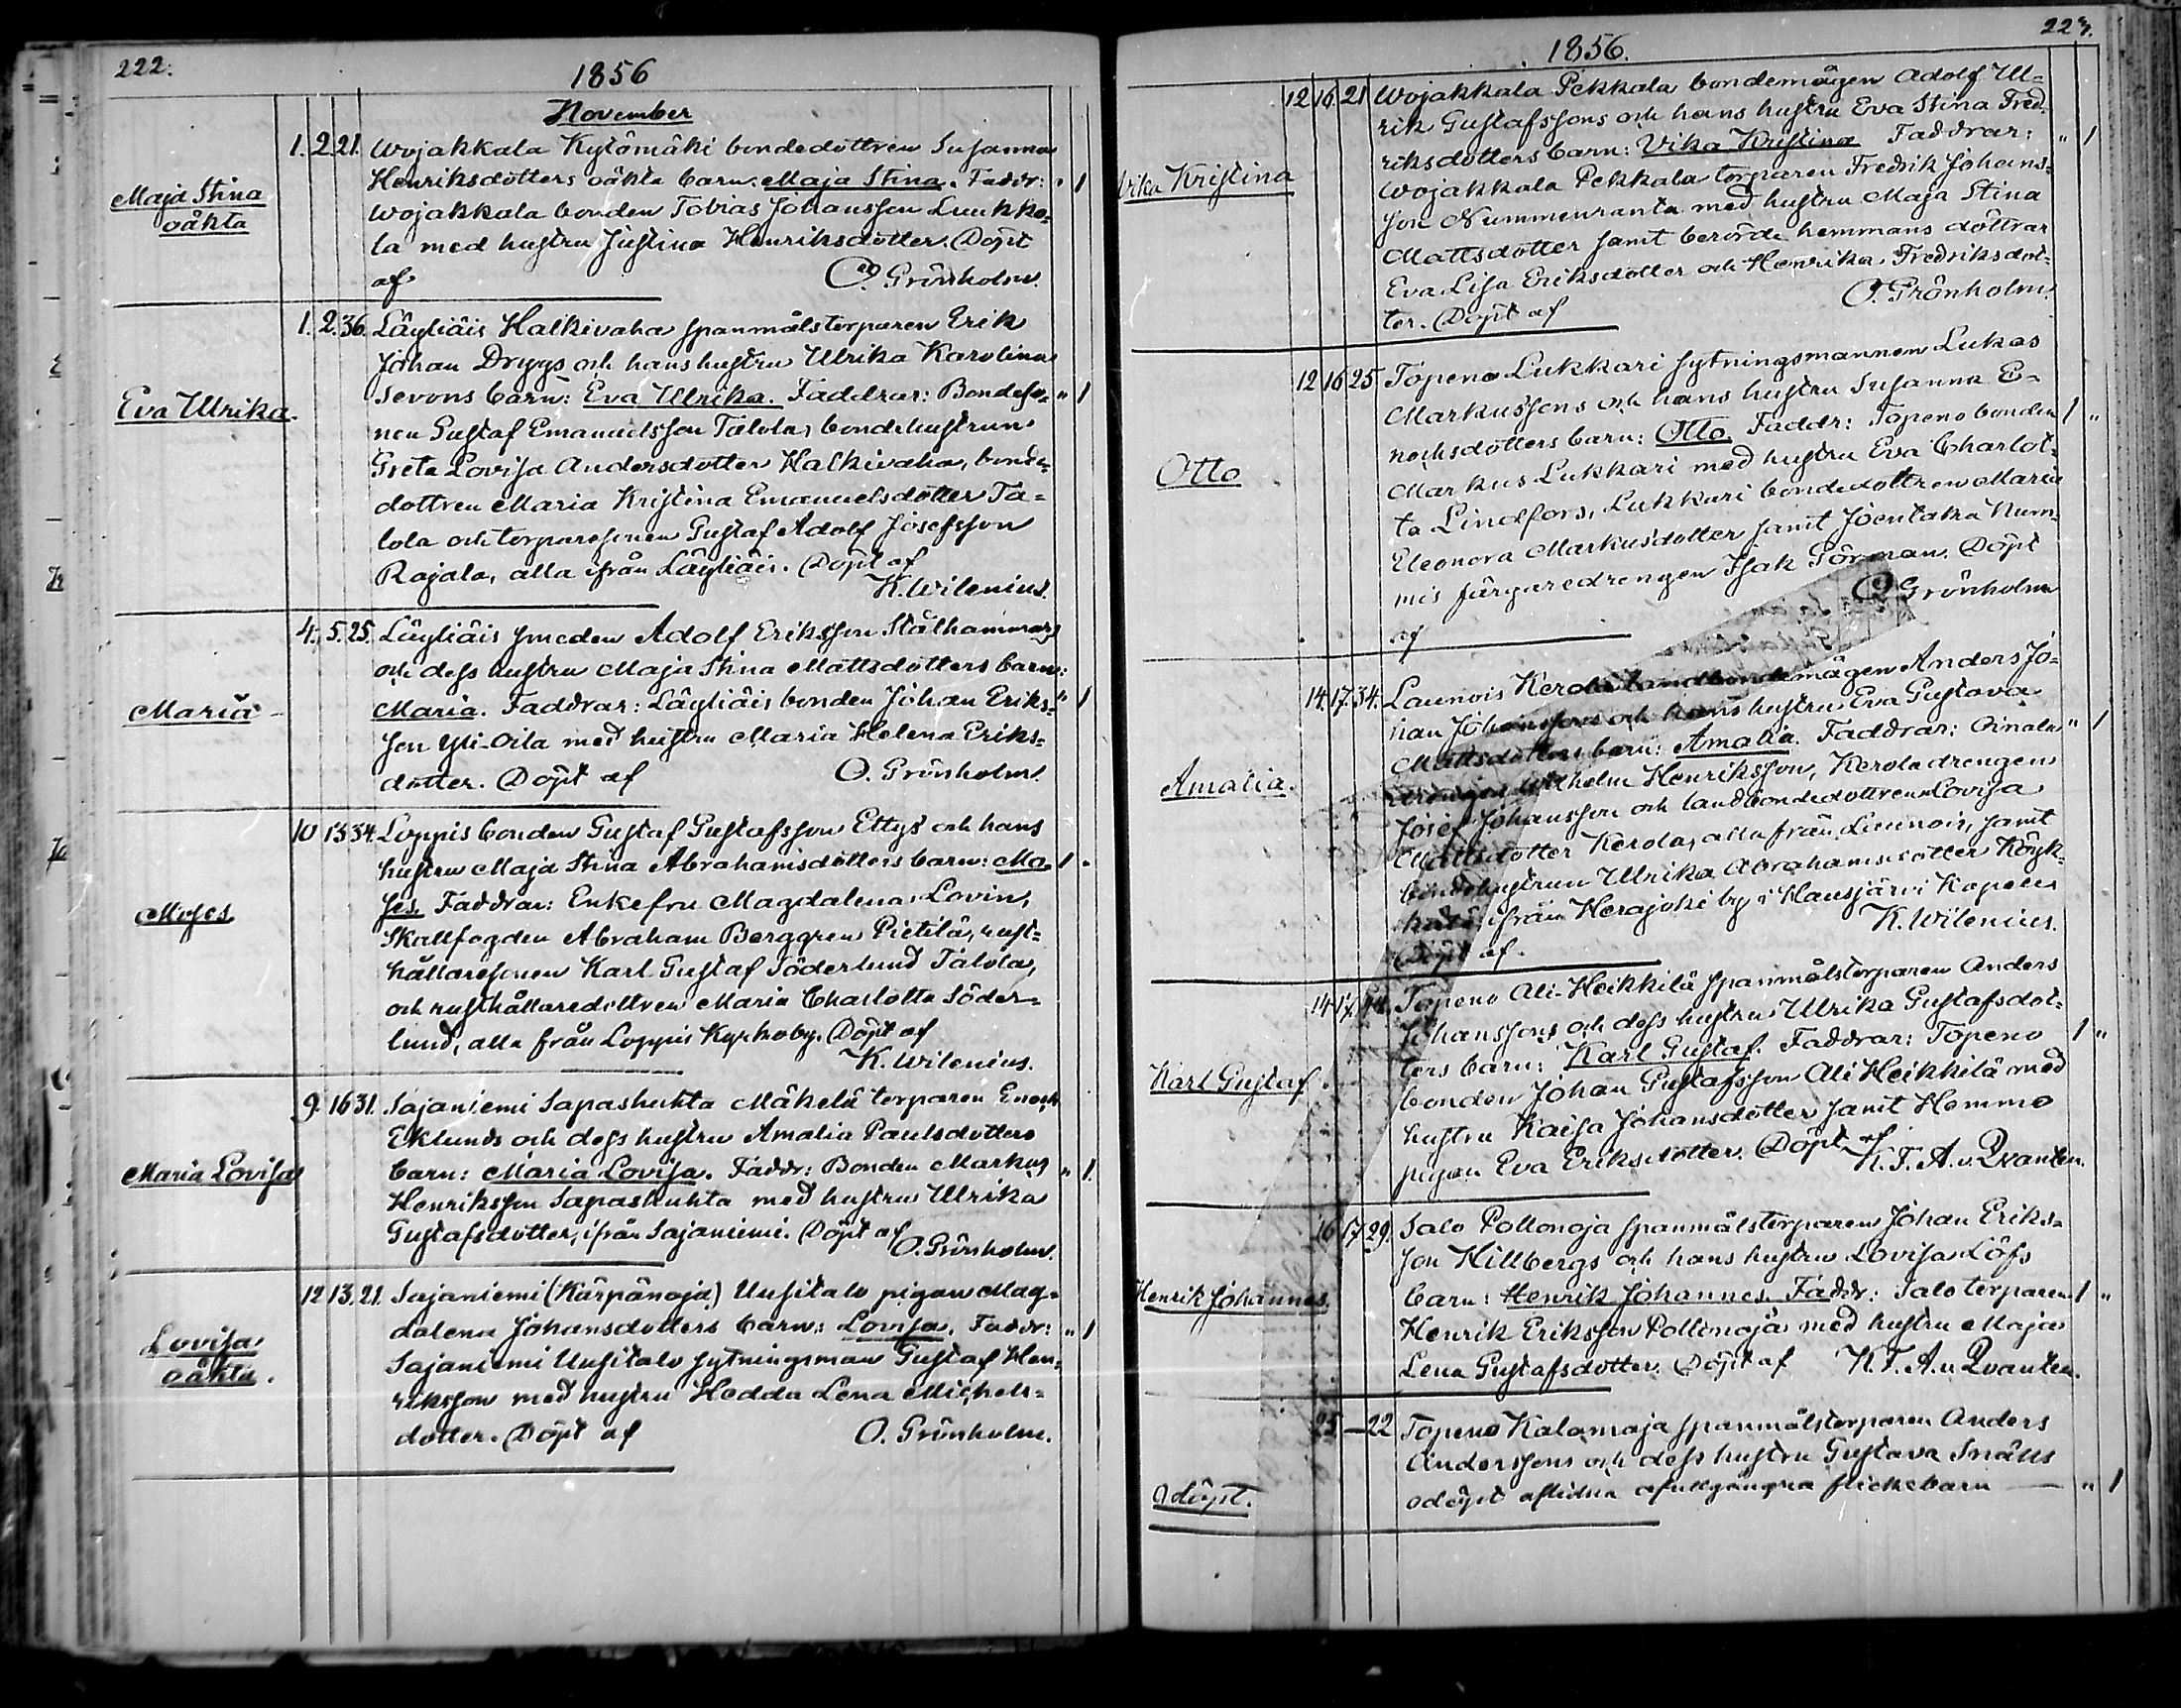 222.
1856
November
Maja Stina
oäkta
1. 2. 21. Wojakkala Kytömäki bondedottren Susanna
Henriksdotters oäkta barn: Maja Stina. Faddr: " 1
Wojakkala bonden Tobias Johansson Luukko-
la med hustru Justina Henriksdotter. Döpt
af O. Grönholm.
Eva Ulrika.
1. 2. 36. Läyliäis Halkivaha spanmålstorparen Erik
Johan Drygs och hans hustru Ulrika Karolina
Sevons barn: Eva Ulrika. Faddrar: Bondeso- " 1
nen Gustaf Emanuelsson Talola, bondehustrun
Greta Lovisa Andersdotter Halkivaha, bonde-
dottren Maria Kristina Emanuelsdotter Ta-
lola och torparesonen Gustaf Adolf Josefsson
Rajala, alla ifrån Läyliäis. Döpt af
K. Wilenius.
Maria
4. 5. 25. Läyliäis smeden Adolf Eriksson Stålhammars
och dess hustru Maja Stina Mattsdotters barn:
Maria. Faddrar: Läyliäis bonden Johan Eriks- " 1
son Yli-Oila med hustru Maria Helena Eriks-
dotter. Döpt af O. Grönholm.
Moses
10 13 34. Loppis bonden Gustaf Gustafsson Ettys och hans
hustru Maja Stina Abrahamsdotters barn: Mo- 1 "
ses. Faddrar: Enkefru Magdalena Lovin,
Skallfogden Abraham Berggren Pietilä, rust-
hållaresonen Karl Gustaf Söderlund Talola,
och rusthållaredottren Maria Charlotta Söder-
lund, alla från Loppis Kyrkoby. Döpt af
K. Wilenius.
Maria Lovisa
9. 16 31. Sajaniemi Sapashuhta Mäkelä torparen Enoch
Eklunds och dess hustru Amalia Paulsdotters
barn: Maria Lovisa. Faddr: Bonden Markus " 1.
Henriksson Sapashuhta med hustru Ulrika
Gustafsdotter, ifrån Sajaniemi. Döpt af
O. Grönholm.
Lovisa
oäkta.
12 13. 21. Sajaniemi (Kärpänoja) Uusitalo pigan Mag-
dalena Johansdotters barn: Lovisa. Faddr: " 1
Sajaniemi Uusitalo sytningsman Gustaf Hen-
riksson med hustru Hedda Lena Michels-
dotter. Döpt af O. Grönholm.
223.
1856.
Vika Kristina
12 16 21 Wojakkala Pekkala bondemågen Adolf Ul-
rik Gustafssons och hans hustru Eva Stina Fred-
riksdotters barn: Vika Kristina Faddrar: " 1
Wojakkala Pekkala torparen Fredrik Johans-
son Nummenranta med hustru Maja Stina
Mattsdotter samt berörde hemmans döttrar
Eva Lisa Eriksdotter och Henrika Fredriksdot-
ter. Döpt af O. Grönholm.
Otto
12 16 25 Topeno Lukkari sytningsmannen Lukas
Markussons och hans hustru Susanna E-
nochsdotters barn: Otto. Faddr: Topeno bonden 1 "
Markus Lukkari med hustru Eva Charlot-
ta Lindfors, Lukkari bondedottren Maria
Eleonora Markusdotter samt Joentaka Num-
mis färgaredrengen Isak Törman. Döpt
af O. Grönholm
Amalia.
14. 17. 34. Launois Kerola landbondemågen Anders Jo-
han Johanssons och hans hustru Eva Gustava
Mattsdotters barn: Amalia. Faddrar: Oinala " 1
drengen Wilhelm Henriksson, Kerola drengen
Josef Johansson och landbondedottren Lovisa
Mattsdotter Kerola, alla från Launois, samt
bondehustrun Ulrika Abrahamsdotter
ifrån Herajoki by i Hausjärvi Kapell.
Döpt af. K. Wilenius.
Karl Gustaf
14 17. Topeno Ali-Heikkilä spanmålstorparen Anders
Johanssons och dess hustru Ulrika Gustafsdot-
ters barn: Karl Gustaf. Faddrar: Topeno 1 "
bonden Johan Gustafsson Ali Heikkilä med
hustru Kaisa Johansdotter samt Hemmo
pigan Eva Eriksdotter. Döpt af
K. F. A. v. Qvanten.
Henrik Johannes.
16 17 29. Salo Pollonoja spanmålstorparen Johan Eriks-
son Hillbergs och hans hustru Lovisa Löfs
barn: Henrik Johannes. Faddr: Salo torparen 1 "
Henrik Eriksson Pollonoja med hustru Maja
Lena Gustafsdotter. Döpt af K. F. A. v. Qvanten.
Odöpt.
25 — 22 Topeno Kalamaja spanmålstorparen Anders
Anderssons och dess hustru Gustava Snälls
odöpt aflidna ofullgångna flickebarn — " 1